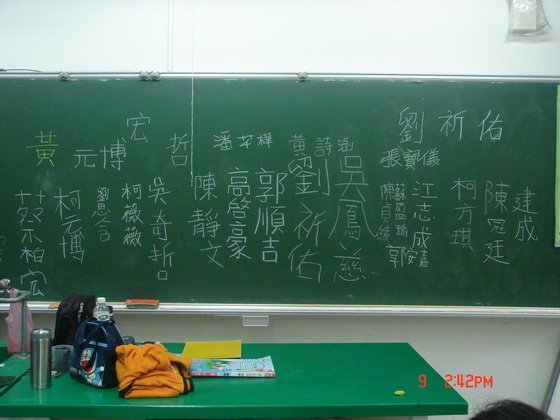 劉祈佑
宏哲
黃
元博
潘苹樺
黃詩涵
張寶儀
建成
陳冠廷
柯方琪
江志成
郭安嘉
吳鳳慈
劉祈佑
郭順吉
高啓豪
陳靜文
吳奇哲
柯薇薇
劉思言
柯元博
蔡柏宏
9 2:42PM